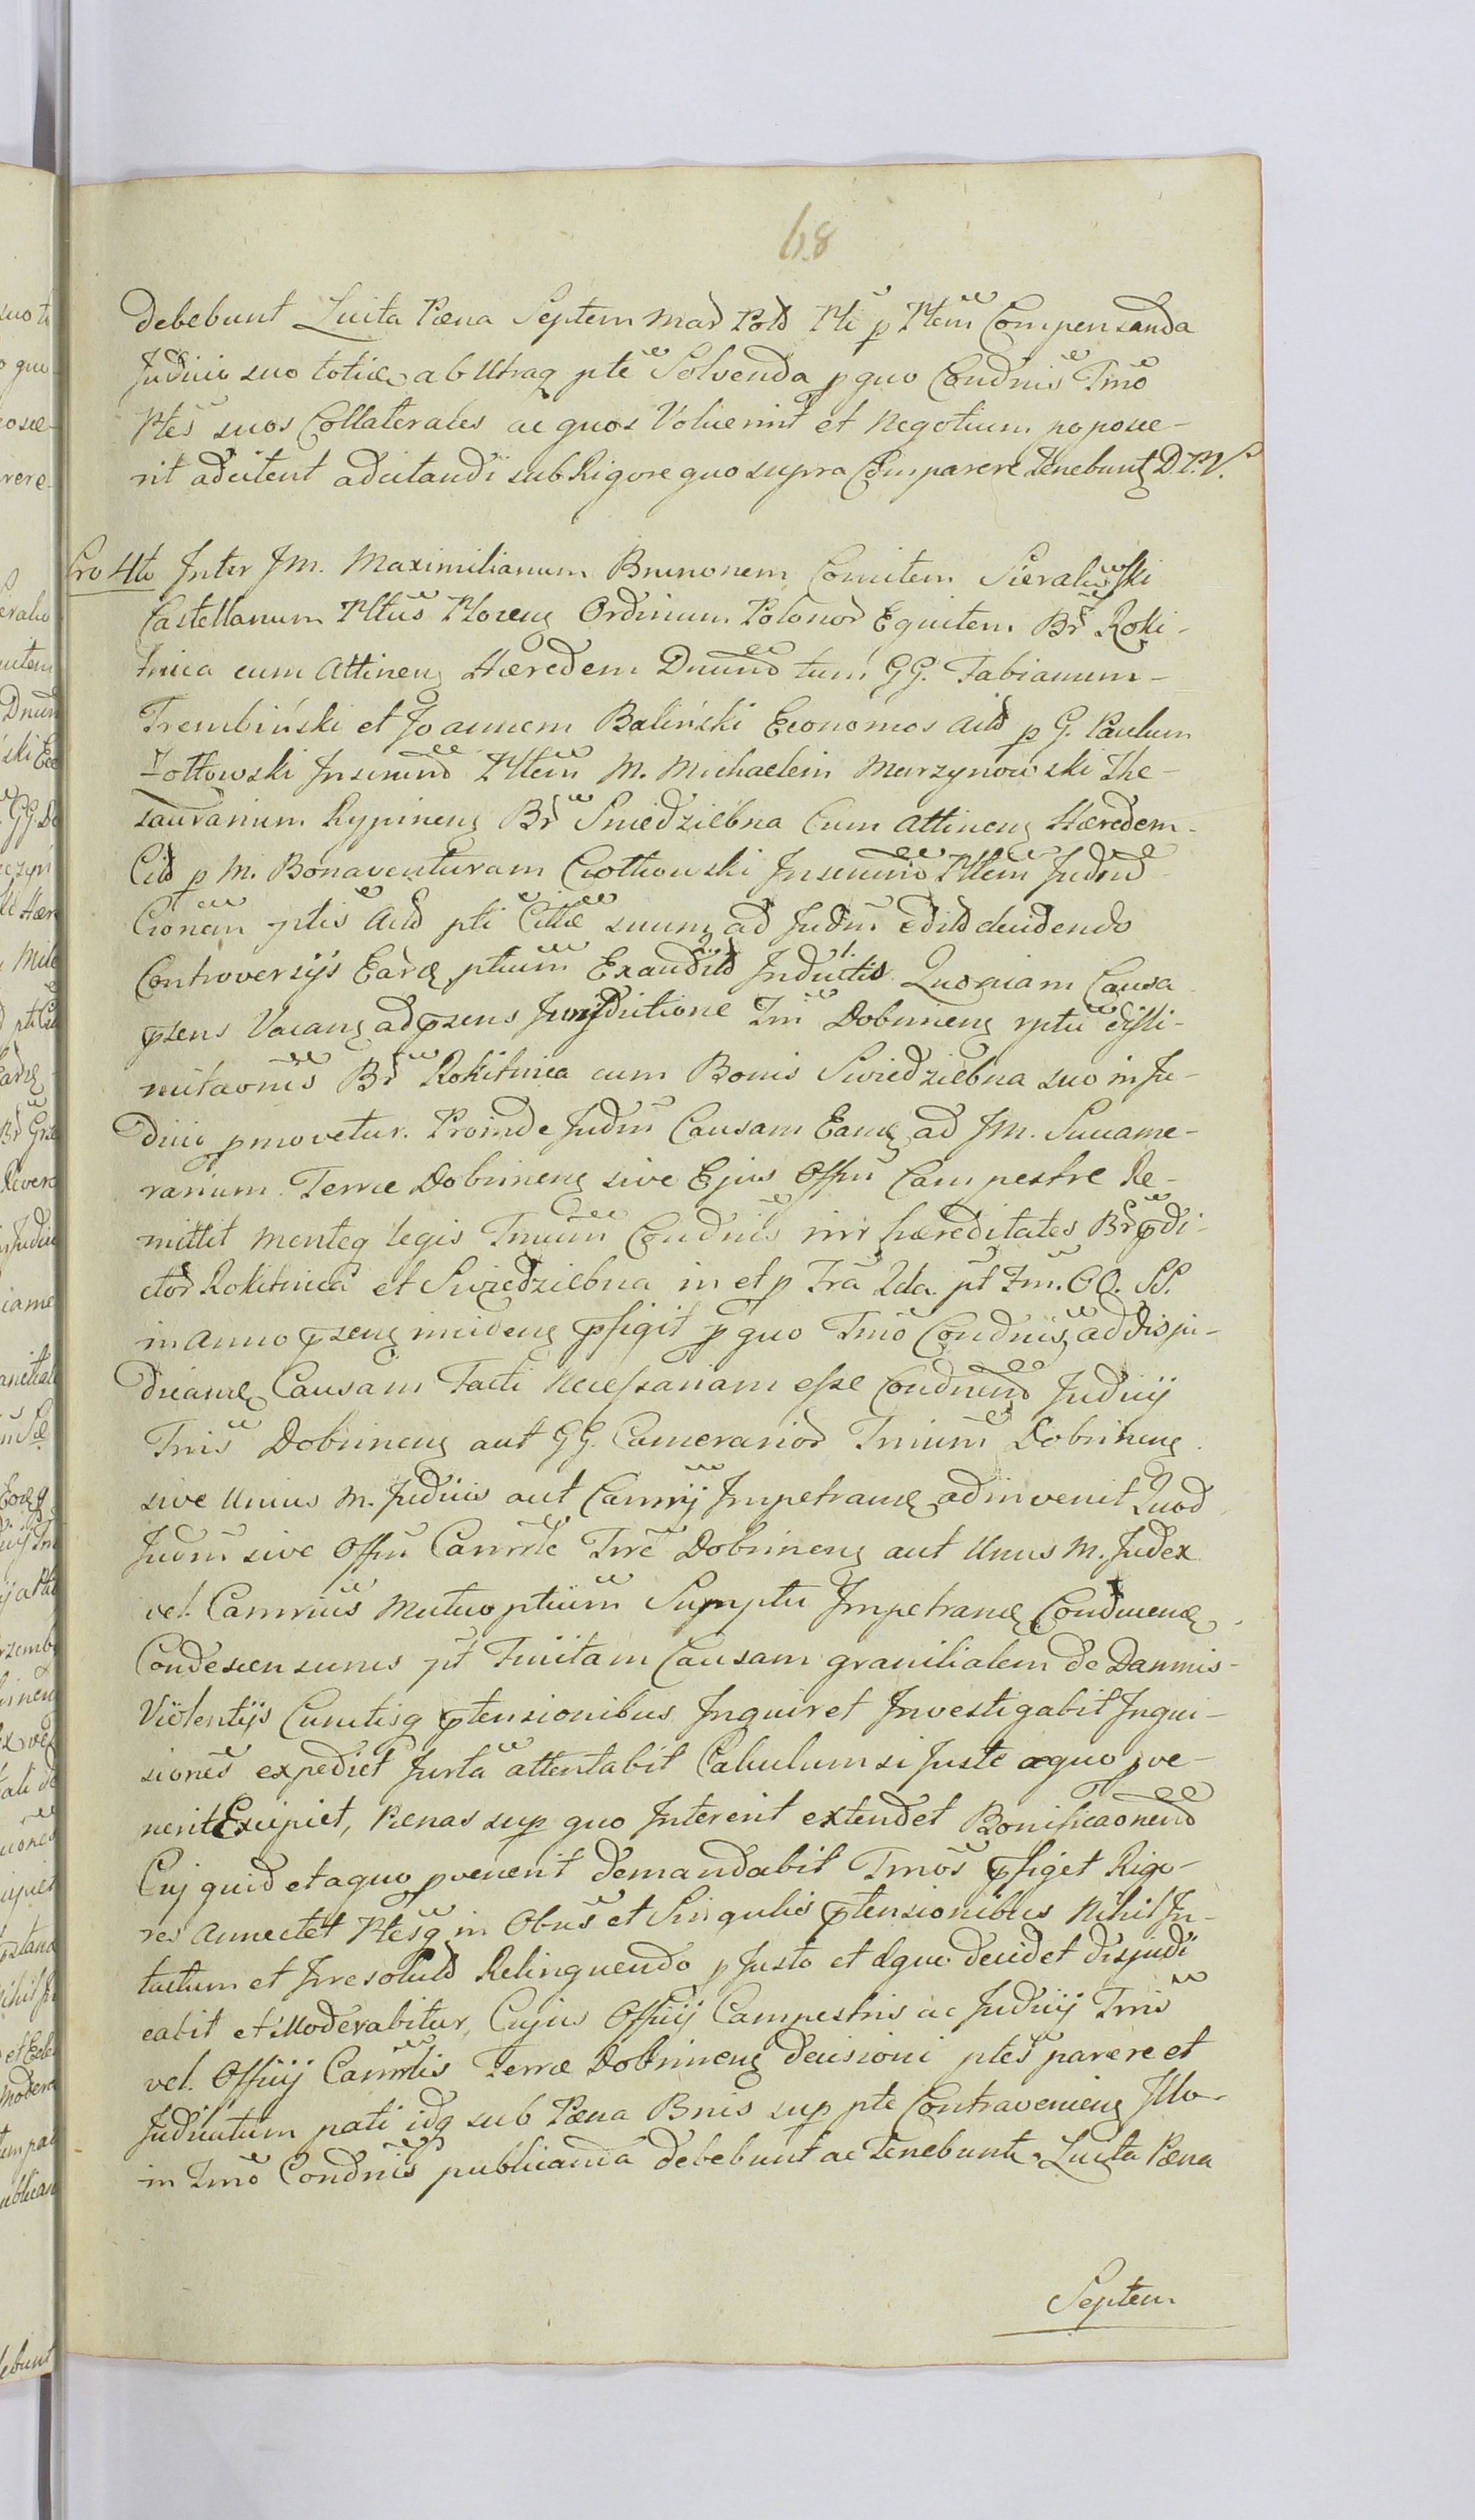 68
debebunt Luita Pæna Septem Mar Pold Pti p Ptem Compensanda
Judicio suo toties ab Utraq pte Solvenda p quo Condnis Tmo
Ptes suos Collaterales ac quos Voluerint et Negotium poposce-
rit adcitent adcitandi sub Rigore quo supra Comparere tenebunt D.T.V.
Pro 4to Inter JM. Maximilianum Brunonem Comitem Sierakowski
Castellanum Ordinum Polonor Equitem Br Roki-
tnica cum Attinen Hæredem Dnum tum GG. Fabianum
Trembiński et Joannem Baliński Economos Actd p G. Paulum
Zołtowski Ptem M. Michaelem Murzynowski The-
saurarium Rypinen Br Swiedziebna Cum attinen Hæredem
Citd p M. Bonaventuram Ciołkowski Ptem Judm
Cionem ptis Actd pti Citæ suum ad Judm decidendo
Controversijs Ear ptium Exaudit Inductis Quoniam Causa
psens Vacan ad psens Jurisdictione Tri Dobrinen rptu disli-
mitaonis Br Rokitnica cum Bonis Swiedziebna suo in Ju-
dicio pmovetur. Proinde Judm Causam Eam ad JM. Succame-
rarium Terræ Dobrinen sive Ejus Offm Campestre Re-
mittit Menteq legis Tmum Condnis inr hæreditates Br pdi-
ctor Rokitnica et Swiedziebna in et p Fra 2da pt Fm. OO. SS.
in Anno psen inciden pfigit p quo Tmo Condnis ad disju-
dicam Causam Facti Necessariam esse Judicij
Tris Dobrinen aut GG. Camerarior Trium Dobrinen
sive Unius M. Judicis aut Camrij Impetram adinvenit Quod
Judm sive Offm Camrrle Trre Dobrinen aut Unus M. Judex
vel. Camrius Mutuo ptium Sumptu Impetran
Condescensurus pt Tmitam Causam granicialem de Damnis
Violentijs Cunctisq ptensionibus Inquiret Investigabit Inqui-
siones expediet Jurta attentabit Calculum si Juste æquo pve-
nerit Excipiet, Pænas sup quo Intererit extendet Bonificaonem
Cuj quid et a quo pvenerit demandabit Tmos pfiget Rigo-
res annectet Ptesq in Obus et Singulis ptensionibus Nihil In-
tactum et Irresolutd Relinquendo p Justo et Æquo decidet disjudi
cabit et Moderabitur, Cujus Officij Campestris ac Judicij Tris
vel. Officij Camrrlis Terræ Dobrinen decisioni ptes parere et
Judicatum pati idq sub Pæna Bnis sup pte Contravenien Illo
in Tmo Condnis publicanda debebunt ac Tenebunt Luita Pæna
Septem